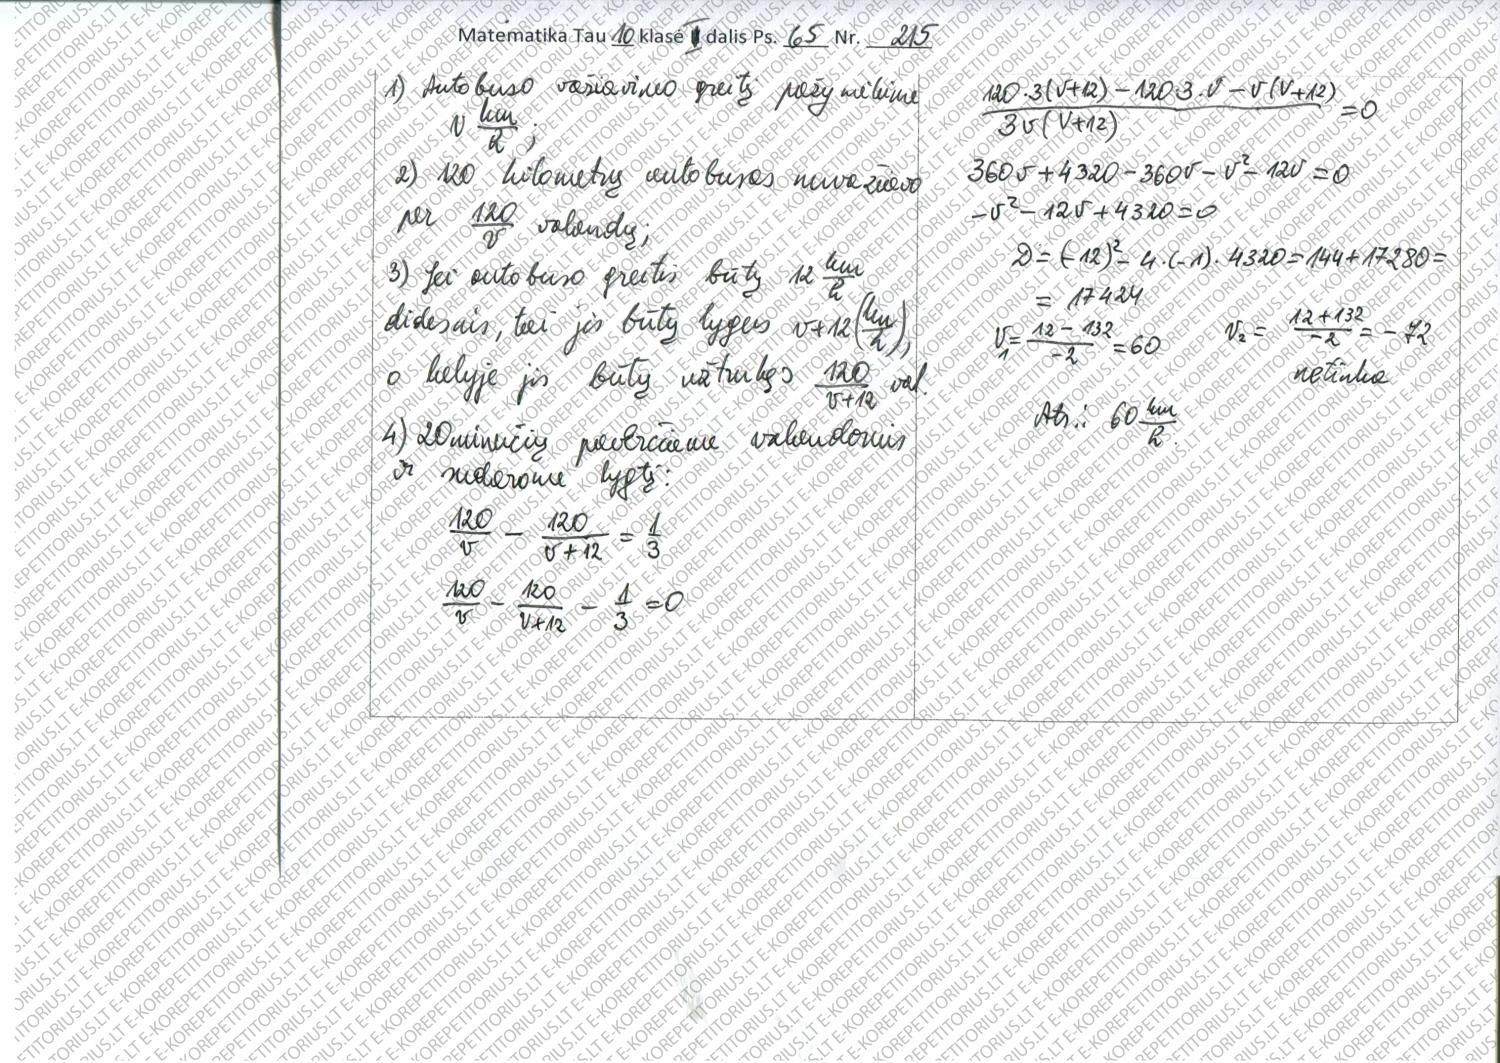 Matematika Tau 10 klasė II dalis Ps. 65 Nr. 215
1) Autobuso važiavimo greitį pažymėkime
v km/h;
2) 120 kilometrų autobusas nuvažiavo
per 120/v valandų;
3) Jei autobuso greitis būtų 12 km/h
didesnis, tai jis būtų lygus v+12 (km/h),
o kelyje jis būtų užtrukęs 120/(v+12) val.
4) 20 minučių paverčiame valandomis
ir sudarome lygtį:
120/v - 120/(v+12) = 1/3
120/v - 120/(v+12) - 1/3 = 0
(120·3(v+12) - 120·3·v - v(v+12))/(3v(v+12)) = 0
360v + 4320 - 360v - v² - 12v = 0
-v² - 12v + 4320 = 0
D = (-12)² - 4·(-1)·4320 = 144 + 17280 =
= 17424
v₁ = (12 - 132)/-2 = 60 v₂ = (12 + 132)/-2 = -72
netinka
Ats.: 60 km/h
E-KOREPETITORIUS.LT